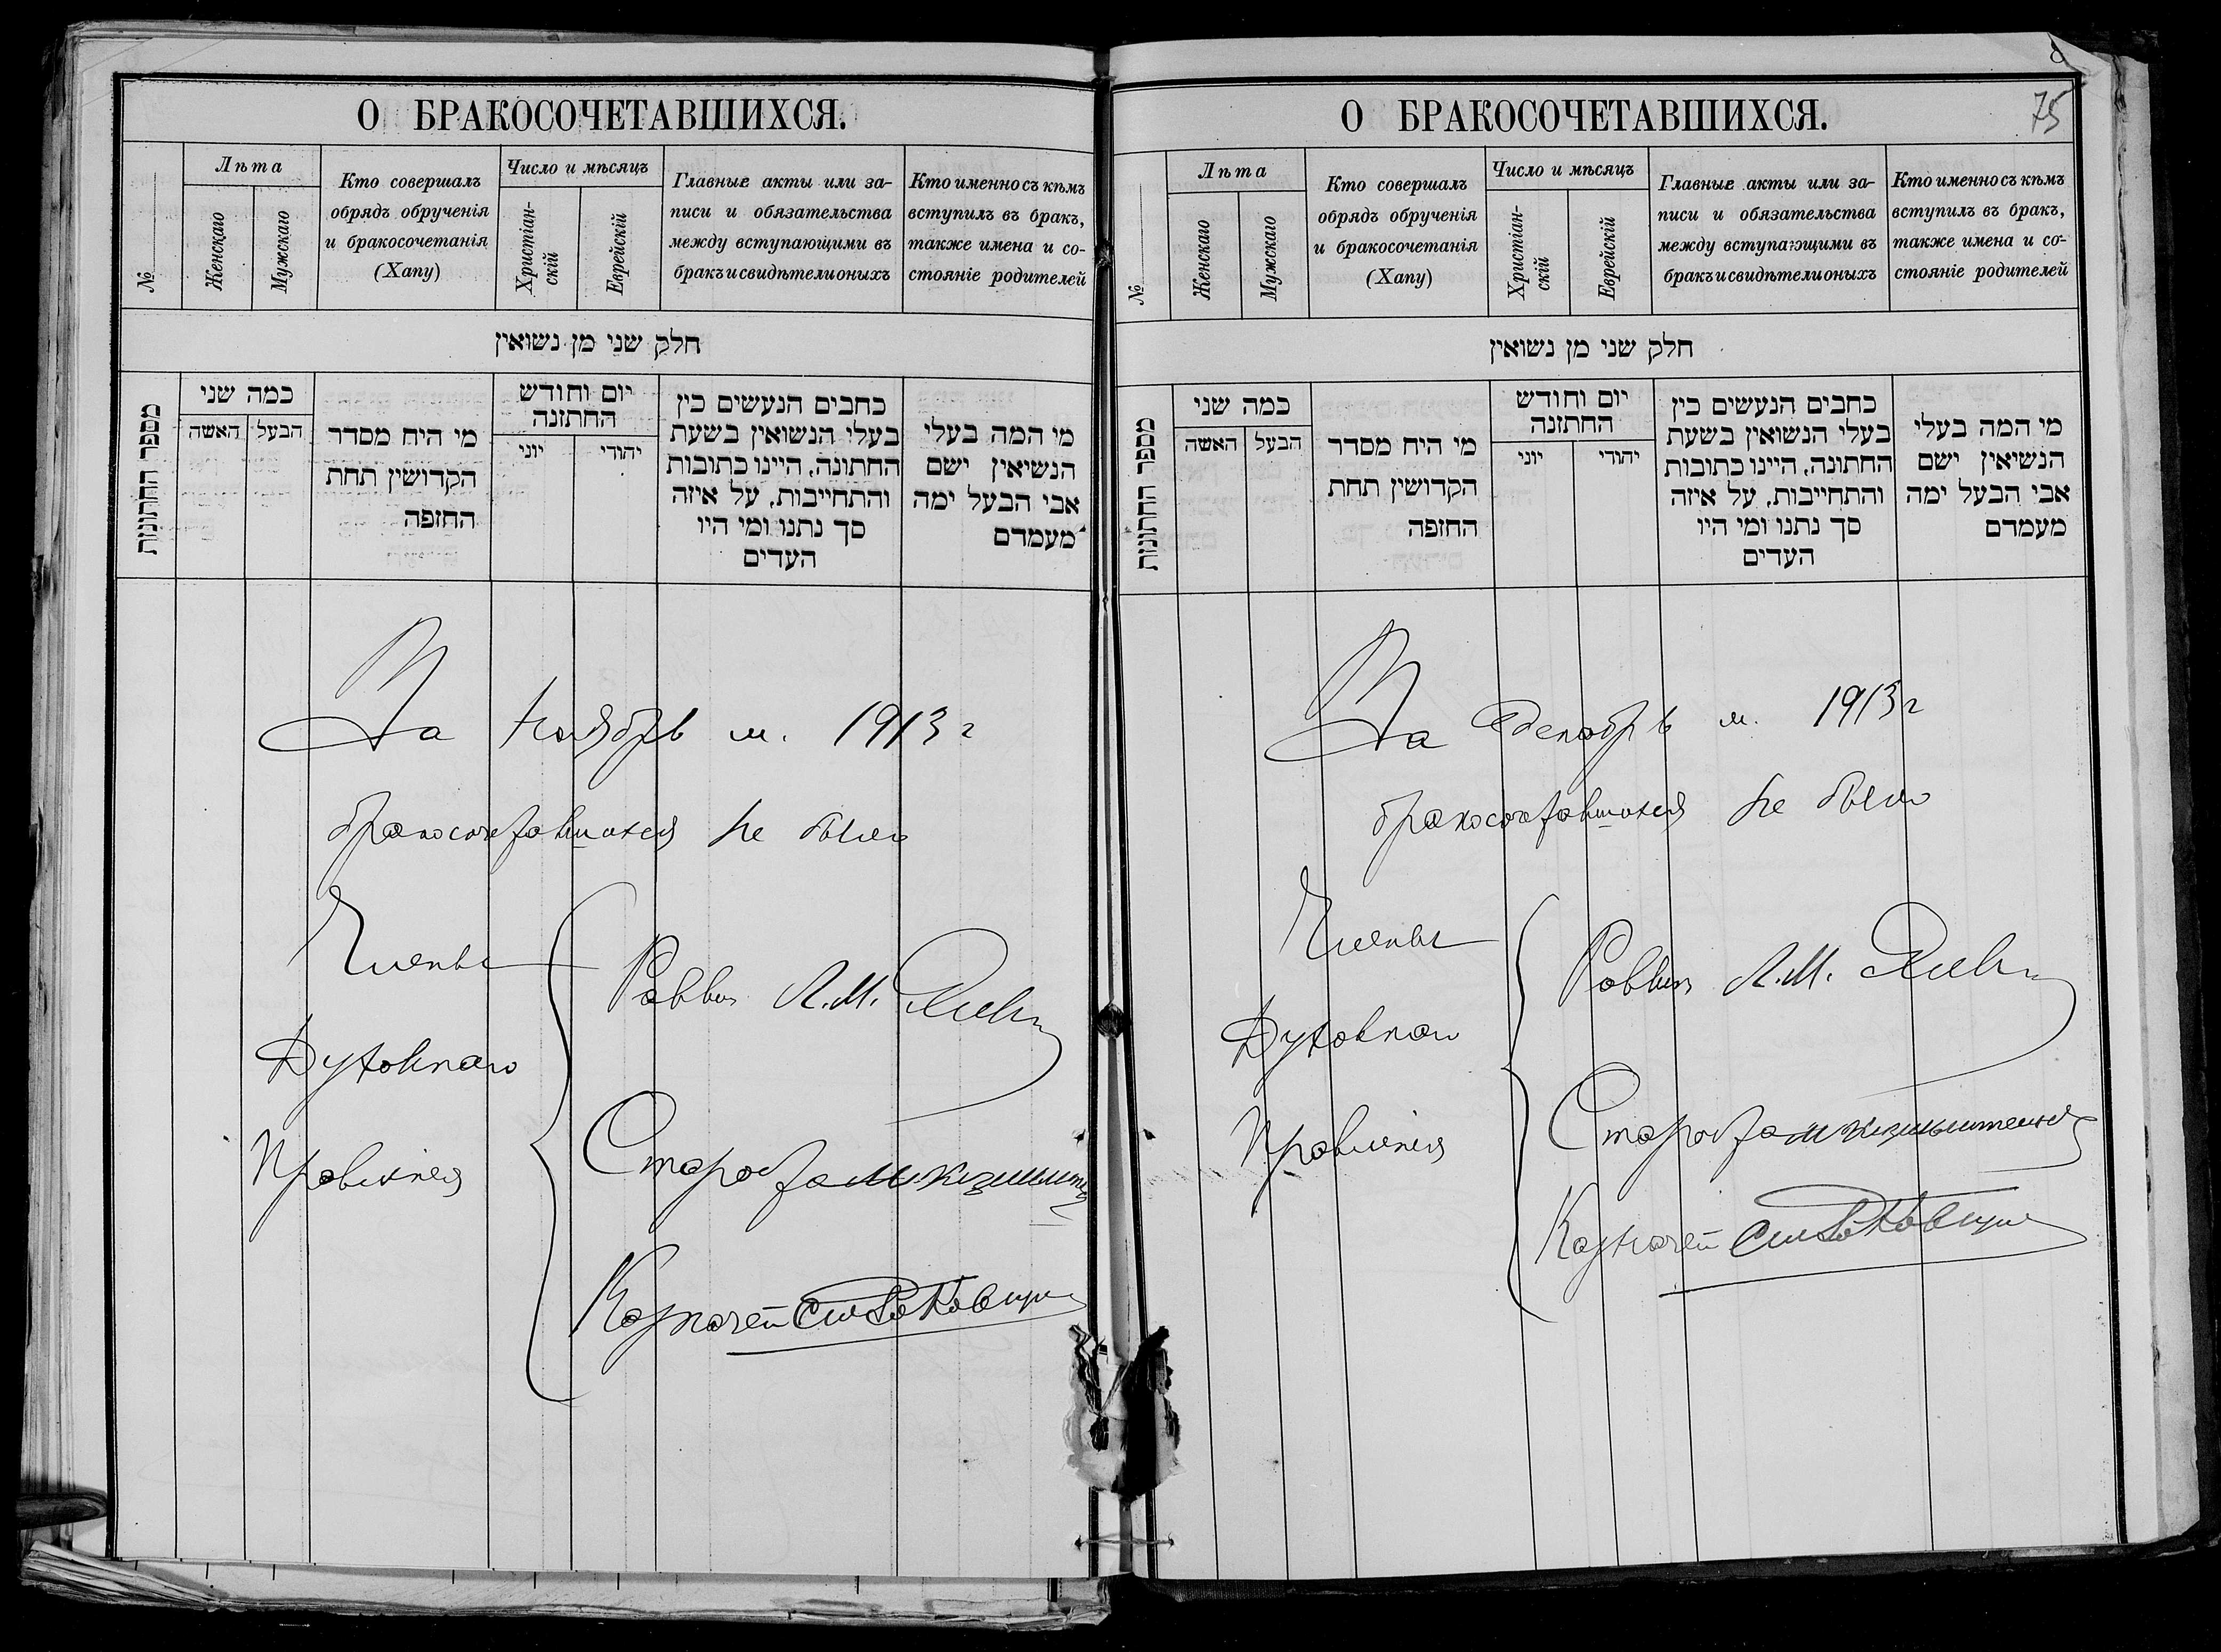 О БРАКОСОЧЕТАВШИХСЯ.
№
Лѣта
Женскаго
Мужскаго
Кто совершалъ
обрядъ обрученія
и бракосочетанія
(Хапу)
Число и мѣсяцъ
Христіан-
скій
Еврейскій
Главные акты или за-
писи и обязательства
между вступающими въ
бракъ и свидѣтели оныхъ
Кто именно съ кѣмъ
вступилъ въ бракъ,
также имена и со-
стояніе родителей
חלק שני מן נשואין
מספר החתונות
כמה שני
האשה
הבעל
מי היח מסדר
הקדושין תחת
החזפה
יום וחודש
החתזנה
יוני
יהודי
כחבים הנעשים כין
בעלי הנשואין בשעת
החתונה, היינו כתובות
והתחייבות, על איזה
סך נתנו ומי היו
העדים
מי המה בעלי
הנשיאין ישם
אבי הבעל ימה
מעמדם
За Ноябрь м. 1913 г
бракосочетавшихся не было
Члены
Духовнаго
Правленія
Раввин Л.М.
Староста М
Казначей
О БРАКОСОЧЕТАВШИХСЯ.
75
№
Лѣта
Женскаго
Мужскаго
Кто совершалъ
обрядъ обрученія
и бракосочетанія
(Хапу)
Число и мѣсяцъ
Христіан-
скій
Еврейскій
Главные акты или за-
писи и обязательства
между вступающими въ
бракъ и свидѣтели оныхъ
Кто именно съ кѣмъ
вступилъ въ бракъ,
также имена и со-
стояніе родителей
חלק שני מן נשואין
מספר החתונות
כמה שני
האשה
הבעל
מי היח מסדר
הקדושין תחת
החזפה
יום וחודש
החתזנה
יוני
יהודי
כחבים הנעשים כין
בעלי הנשואין בשעת
החתונה, היינו כתובות
והתחייבות, על איזה
סך נתנו ומי היו
העדים
מי המה בעלי
הנשיאין ישם
אבי הבעל ימה
מעמדם
За Декабрь м. 1913 г
бракосочетавшихся не было
Члены
Духовнаго
Правленія
Раввин Л.М.
Староста М
Казначей